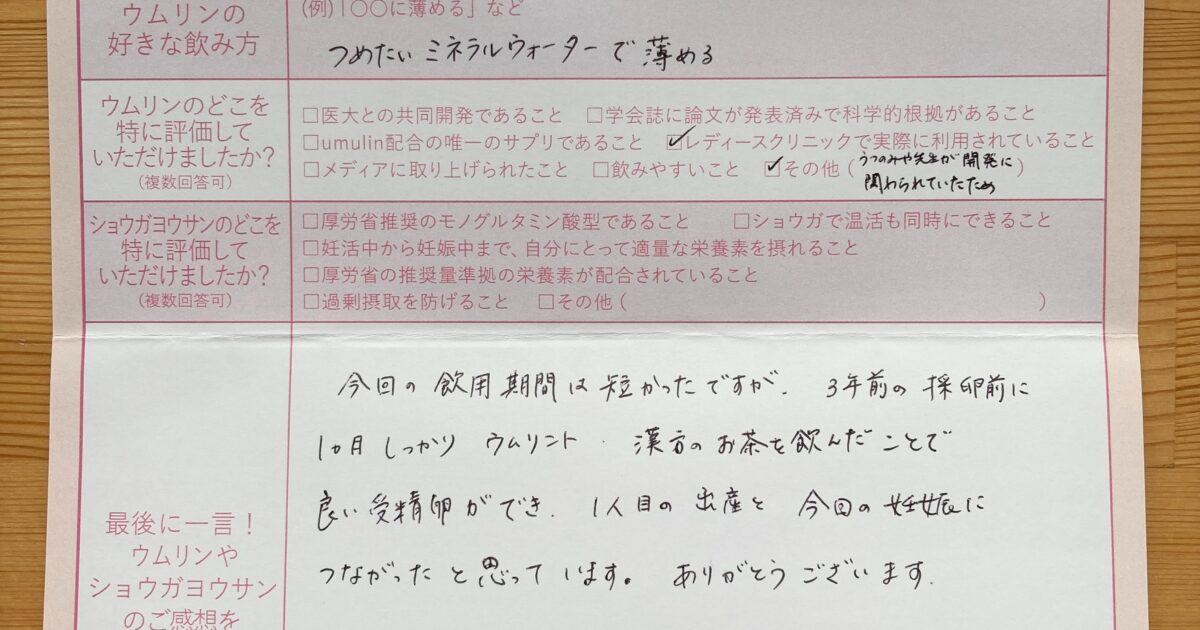 ウムリンの
好きな飲み方
(例)「○○に薄める」など
つめたい ミネラルウォーターで薄める
ウムリンのどこを
特に評価して
いただけましたか?
(複数回答可)
□医大との共同開発であること □学会誌に論文が発表済みで科学的根拠があること
□umulin配合の唯一のサプリであること ☑レディースクリニックで実際に利用されていること
□メディアに取り上げられたこと □飲みやすいこと ☑その他 (うつのみや先生が開発に
関わられていたため)
ショウガヨウサンのどこを
特に評価して
いただけましたか?
(複数回答可)
□厚労省推奨のモノグルタミン酸型であること □ショウガで温活も同時にできること
□妊活中から妊娠中まで、自分にとって適量な栄養素を摂れること
□厚労省の推奨量準拠の栄養素が配合されていること
□過剰摂取を防げること □その他 ( )
最後に一言!
ウムリンや
ショウガヨウサン
のご感想を
今回の飲用期間は短かったですが、3年前の採卵前に
1ヵ月しっかり ウムリンと、漢方のお茶を飲んだことで
良い受精卵ができ、1人目の出産と 今回の妊娠に
つながったと思っています。 ありがとうございます。